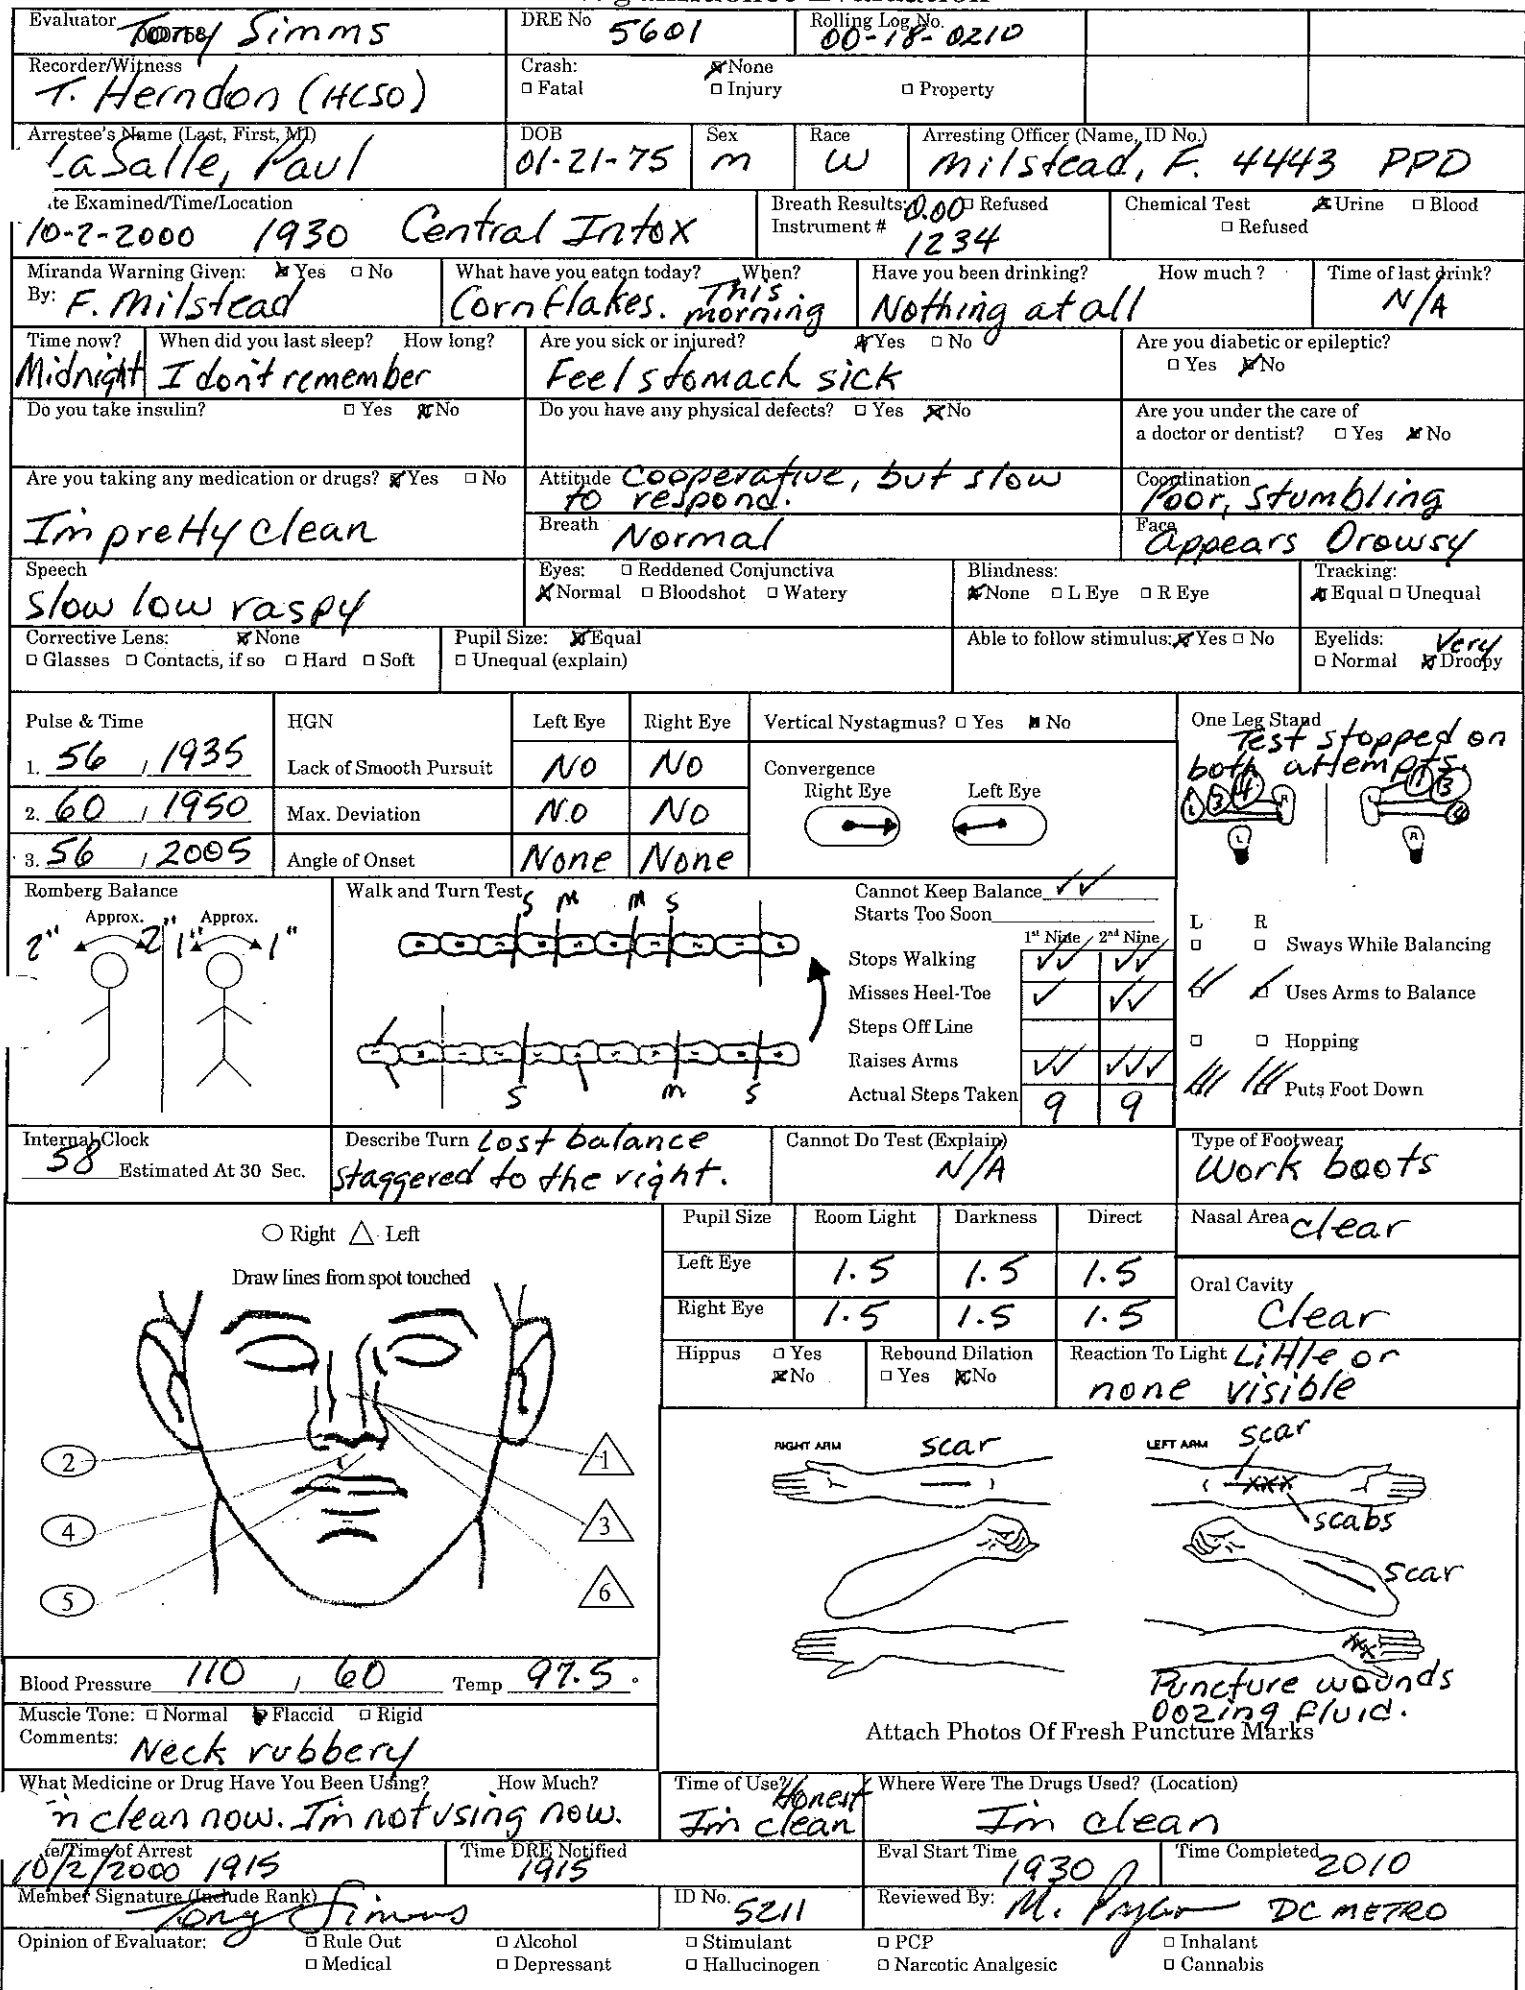 Evaluator Tony Simms
000758
DRE No 5601
Rolling Log No. 00-18-0210
Recorder/Witness
T. Herndon (HCSO)
Crash: ☒None
□ Fatal □ Injury □ Property
Arrestee's Name (Last, First, MI)
LaSalle, Paul
DOB
01-21-75
Sex
M
Race
W
Arresting Officer (Name, ID No.)
Milstead, F. 4443 PPD
te Examined/Time/Location
10-2-2000 1930 Central Intox
Breath Results: 0.00 □ Refused
Instrument # 1234
Chemical Test ☒Urine □ Blood
□ Refused
Miranda Warning Given: ☒ Yes □ No
By: F. Milstead
What have you eaten today? When?
Cornflakes. This morning
Have you been drinking? How much ?
Nothing at all
Time of last drink?
N/A
Time now?
Midnight
When did you last sleep? How long?
I don't remember
Are you sick or injured? ☒Yes □ No
Feel stomach sick
Are you diabetic or epileptic?
□ Yes ☒No
Do you take insulin? □ Yes ☒No
Do you have any physical defects? □ Yes ☒No
Are you under the care of
a doctor or dentist? □ Yes ☒ No
Are you taking any medication or drugs? ☒Yes □ No
I'm pretty clean
Attitude Cooperative, but slow
to respond.
Coordination
Poor, stumbling
Breath Normal
Face
Appears Drowsy
Speech
Slow low raspy
Eyes: □ Reddened Conjunctiva
☒Normal □ Bloodshot □ Watery
Blindness:
☒None □ L Eye □ R Eye
Tracking:
☒Equal □ Unequal
Corrective Lens: ☒ None
□ Glasses □ Contacts, if so □ Hard □ Soft
Pupil Size: ☒Equal
□ Unequal (explain)
Able to follow stimulus: ☒Yes □ No
Eyelids: Very
□ Normal ☒Droopy
Pulse & Time
1. 56 / 1935
2. 60 / 1950
3. 56 / 2005
HGN Left Eye Right Eye
Lack of Smooth Pursuit NO NO
Max. Deviation NO NO
Angle of Onset None None
Vertical Nystagmus? □ Yes ☒ No
Convergence
Right Eye Left Eye
One Leg Stand
Test stopped on
both attempts.
L R
L R
Romberg Balance
Approx. Approx.
2" 2" 1" 1"
Walk and Turn Test
S M M S
S M S
Cannot Keep Balance ✓✓
Starts Too Soon
1st Nine 2nd Nine
Stops Walking ✓✓ ✓✓
Misses Heel-Toe ✓ ✓✓
Steps Off Line
Raises Arms ✓✓ ✓✓✓
Actual Steps Taken 9 9
L R
□ □ Sways While Balancing
□ □ Uses Arms to Balance
□ □ Hopping
Puts Foot Down
Internal Clock
58 Estimated At 30 Sec.
Describe Turn Lost balance
staggered to the right.
Cannot Do Test (Explain)
N/A
Type of Footwear
Work boots
○ Right △ Left
Draw lines from spot touched
2 1
4 3
5 6
Pupil Size Room Light Darkness Direct
Left Eye 1.5 1.5 1.5
Right Eye 1.5 1.5 1.5
Nasal Area clear
Oral Cavity
Clear
Hippus □ Yes
☒No
Rebound Dilation
□ Yes ☒No
Reaction To Light Little or
none visible
RIGHT ARM scar
LEFT ARM scar
scabs
scar
Puncture wounds
oozing fluid.
Attach Photos Of Fresh Puncture Marks
Blood Pressure 110 / 60 Temp 97.5 °
Muscle Tone: □ Normal ☒Flaccid □ Rigid
Comments: Neck rubbery
What Medicine or Drug Have You Been Using? How Much?
m clean now. I'm not using now.
Time of Use? Honest
I'm clean
Where Were The Drugs Used? (Location)
I'm clean
te/Time of Arrest
10/2/2000 1915
Time DRE Notified
1915
Eval Start Time
1930
Time Completed
2010
Member Signature (Include Rank)
Tony Simms
ID No.
5211
Reviewed By: M. DC METRO
Opinion of Evaluator: □ Rule Out □ Alcohol □ Stimulant □ PCP □ Inhalant
□ Medical □ Depressant □ Hallucinogen □ Narcotic Analgesic □ Cannabis